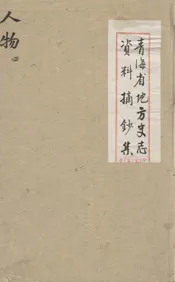 青海省地方史志
资料摘鈔集
人物 四